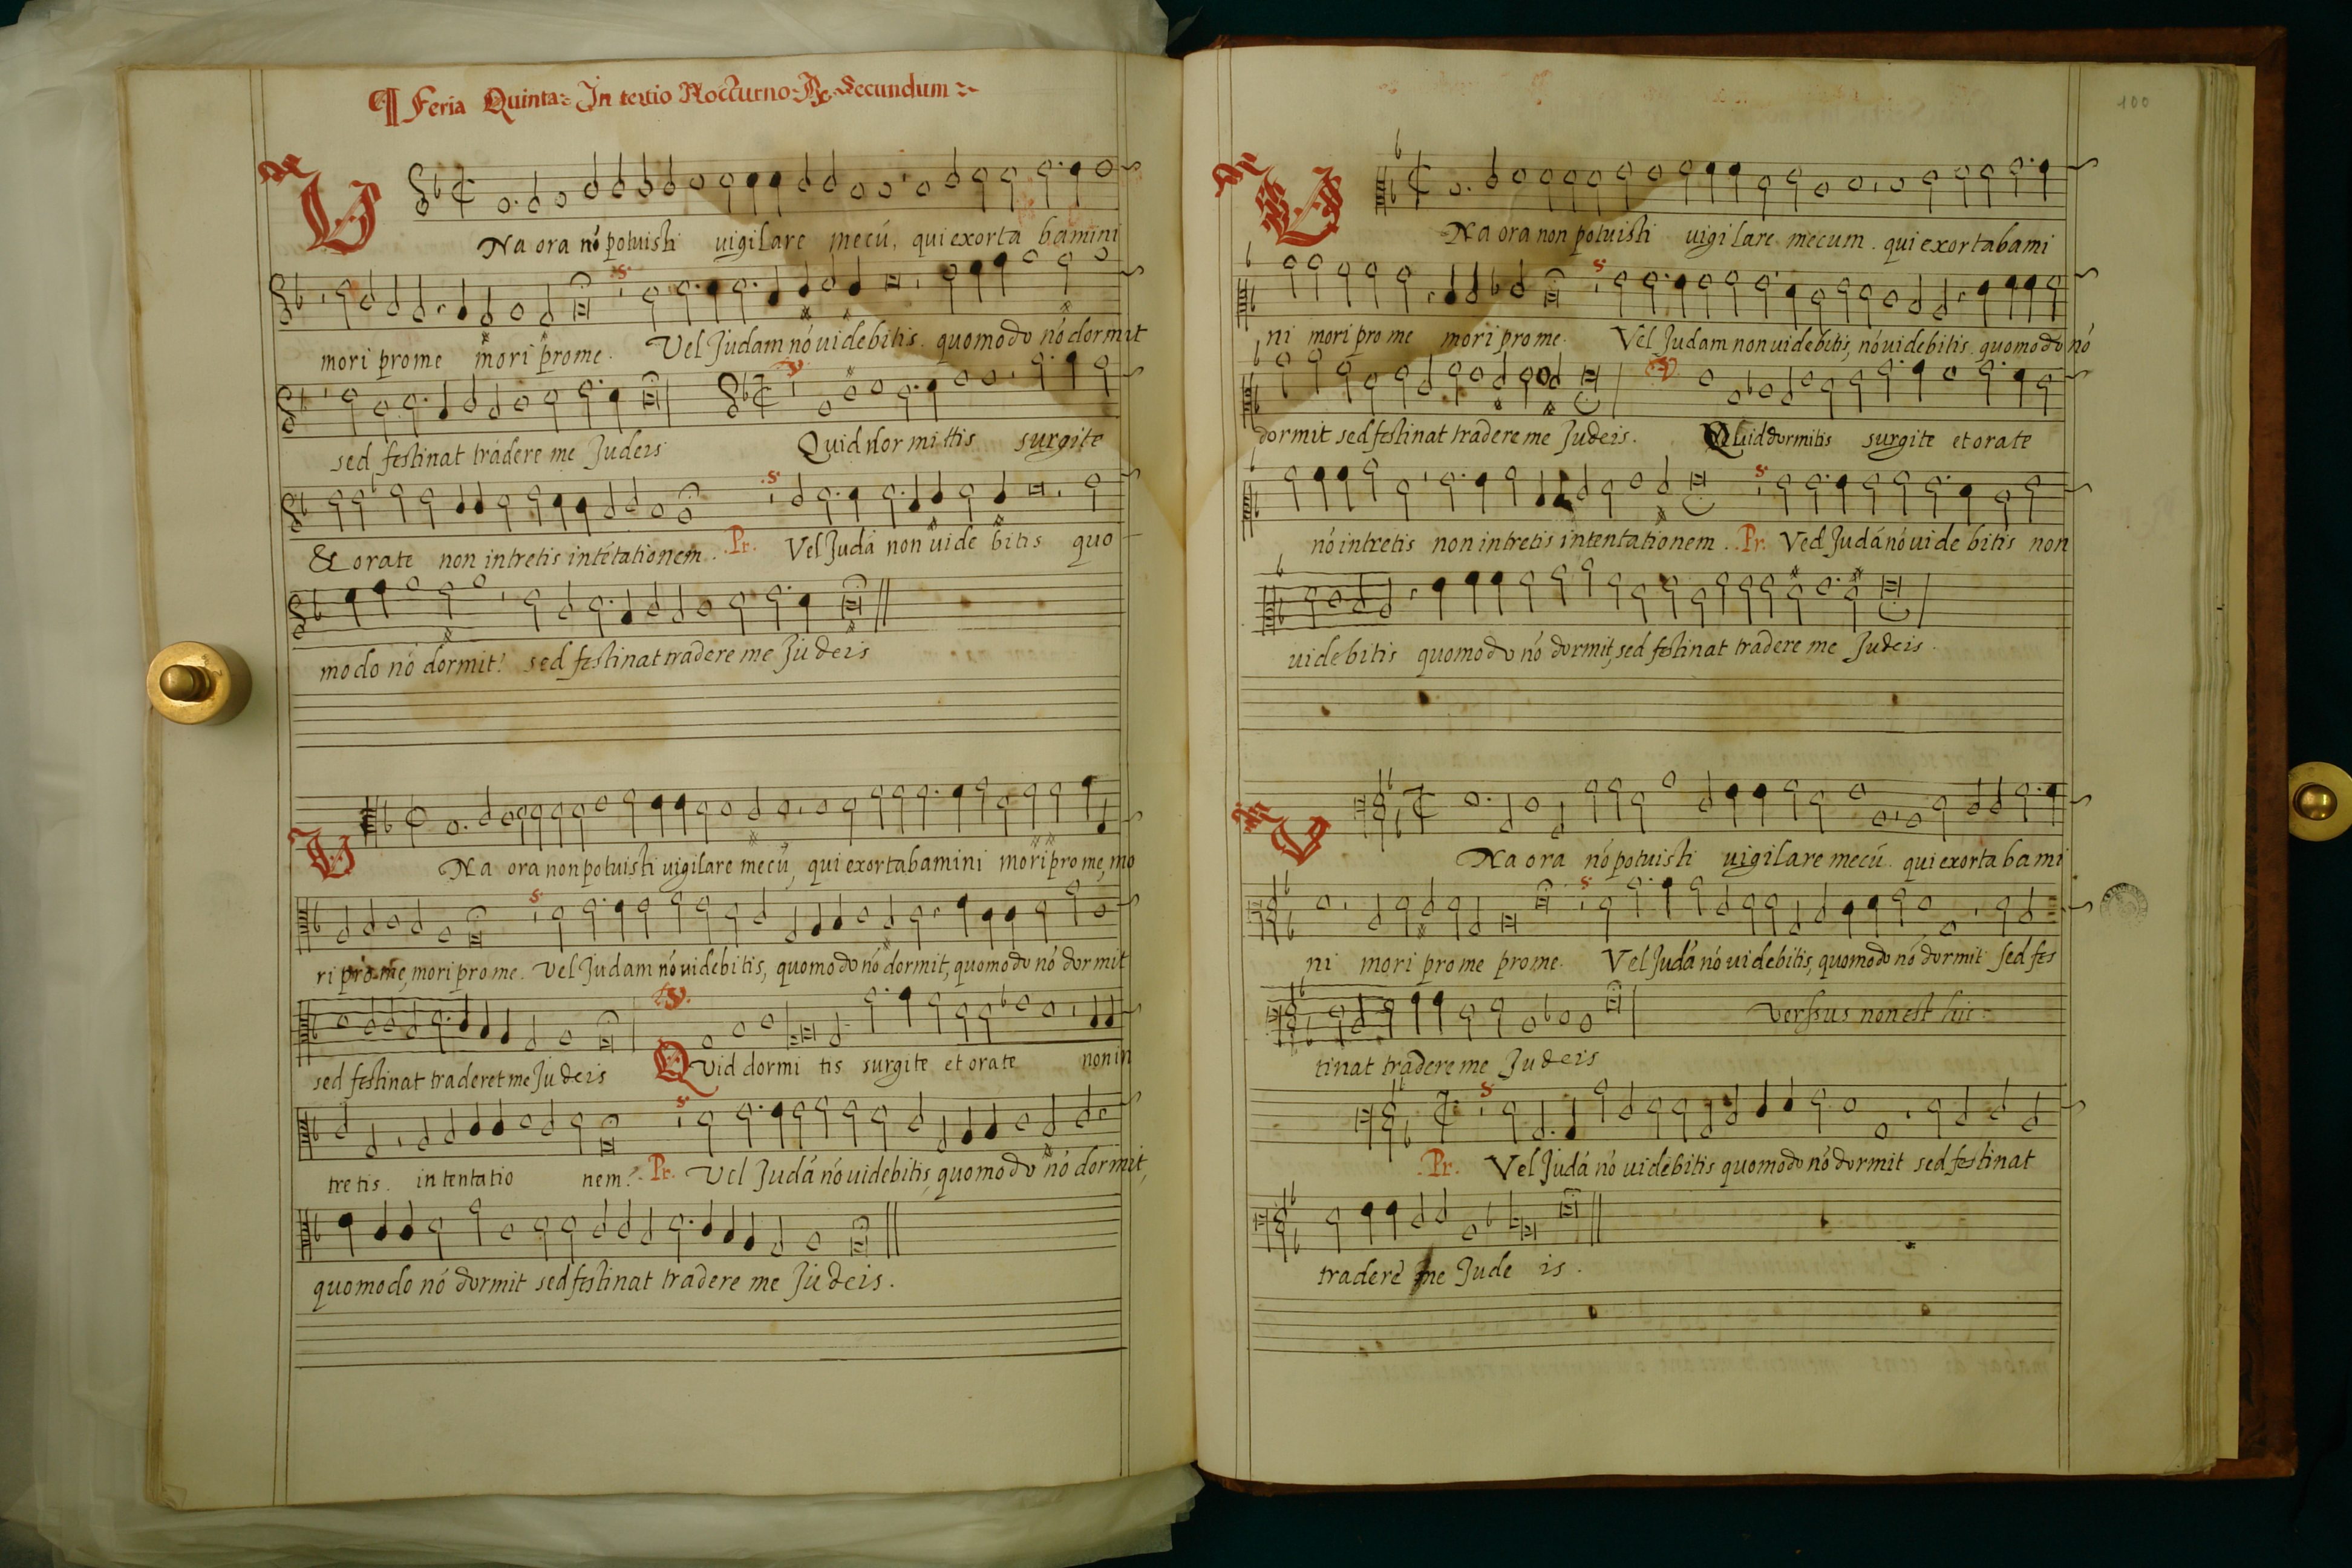 ¶ Feria Quinta: In tertio Nocturno: ℟. Secundum
V Na ora nó potuisti uigilare mecú, qui exorta bamini
mori pro me mori pro me. Vel Judam nó uidebitis. quomodo nó dormit
sed festinat tradere me Judeis Quid dormittis surgite
& orate non intretis in tétationem. Pr. Vel Judá non uide bitis quo
modo nó dormit? sed festinat tradere me Judeis
V Na ora non potuisti uigilare mecú, qui exortabamini mori pro me, mo
ri pro me, mori pro me. Vel Judam nó uidebitis, quomodo nó dormit, quomodo nó dormit
sed festinat traderet me Judeis Quid dormi tis surgite et orate non in
tretis. in tentatio nem? Pr. Vel Judá nó uidebitis, quomodo nó dormit,
quomodo nó dormit sed festinat tradere me Judeis.
100
V Na ora non potuisti uigi lare mecum. qui exortabami
ni mori pro me mori pro me. Vel Judam non uidebitis, nó uidebitis. quomodo nó
dormit sed festinat tradere me Judeis. Quid dormitis surgite et orate
nó intretis non intretis in tentationem. Pr. Ved Judá nó uide bitis non
uidebitis quomodo nó dormit, sed festinat tradere me Judeis.
V Na ora nó potuisti uigilare mecú. qui exortabami
ni mori pro me pro me. Vel Judá nó uidebitis, quomodo nó dormit sed fes
tinat tradere me Judeis Verssus non est hic.
Pr. Vel Judá nó uidebitis quomodo nó dormit sed festinat
tradere me Jude is.